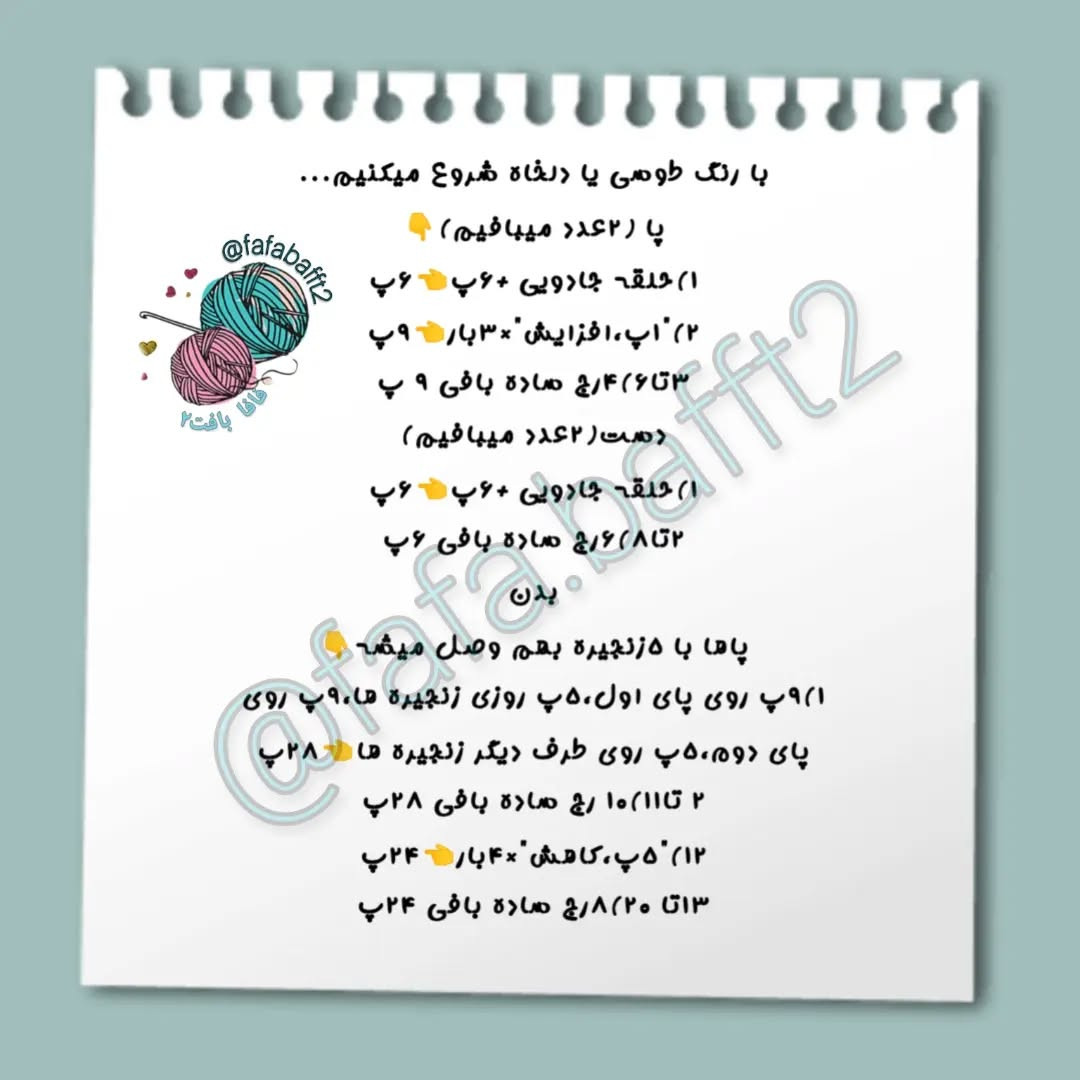 با رنگ طوسی یا دلخاه شروع میکنیم...
پا (۲عدد میبافیم)👇
۱)حلقه جادویی +۶پ👈۶پ
۲)"۱پ،افزایش"×۳بار👈۹پ
۳تا۶)۴رج ساده بافی ۹ پ
دست(۲عدد میبافیم)
۱)حلقه جادویی +۶پ👈۶پ
۲تا۸)۶رج ساده بافی ۶پ
بدن
پاها با ۵زنجیره بهم وصل میشه👇
۱)۹پ روی پای اول،۵پ روزی زنجیره ها،۹پ روی
پای دوم،۵پ روی طرف دیگر زنجیره ها👈۲۸پ
۲ تا۱۱)۱۰ رج ساده بافی ۲۸پ
۱۲)"۵پ،کاهش"×۴بار👈۲۴پ
۱۳تا ۲۰)۸رج ساده بافی ۲۴پ
@fafabafft2
فافا بافت۲
@fafa.bafft2